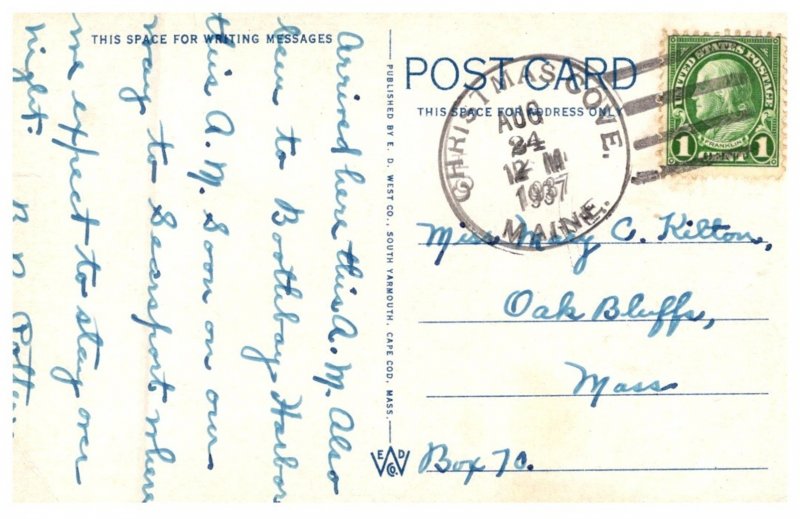 THIS SPACE FOR WRITING MESSAGES
Arrived here this A.M. Also
been to Boothbay Harbor
this A.M. Soon on our
way to Searsport where
we expect to stay over
night.
PUBLISHED BY E. D. WEST CO., SOUTH YARMOUTH, CAPE COD, MASS.
E D
W
CO.
POST CARD
THIS SPACE FOR ADDRESS ONLY
CHRISTMAS COVE.
AUG
24
12 M
1937
MAINE.
UNITED STATES POSTAGE
FRANKLIN
1 CENT 1
Miss Mary C. Kilton,
Oak Bluffs,
Mass
Box 70.